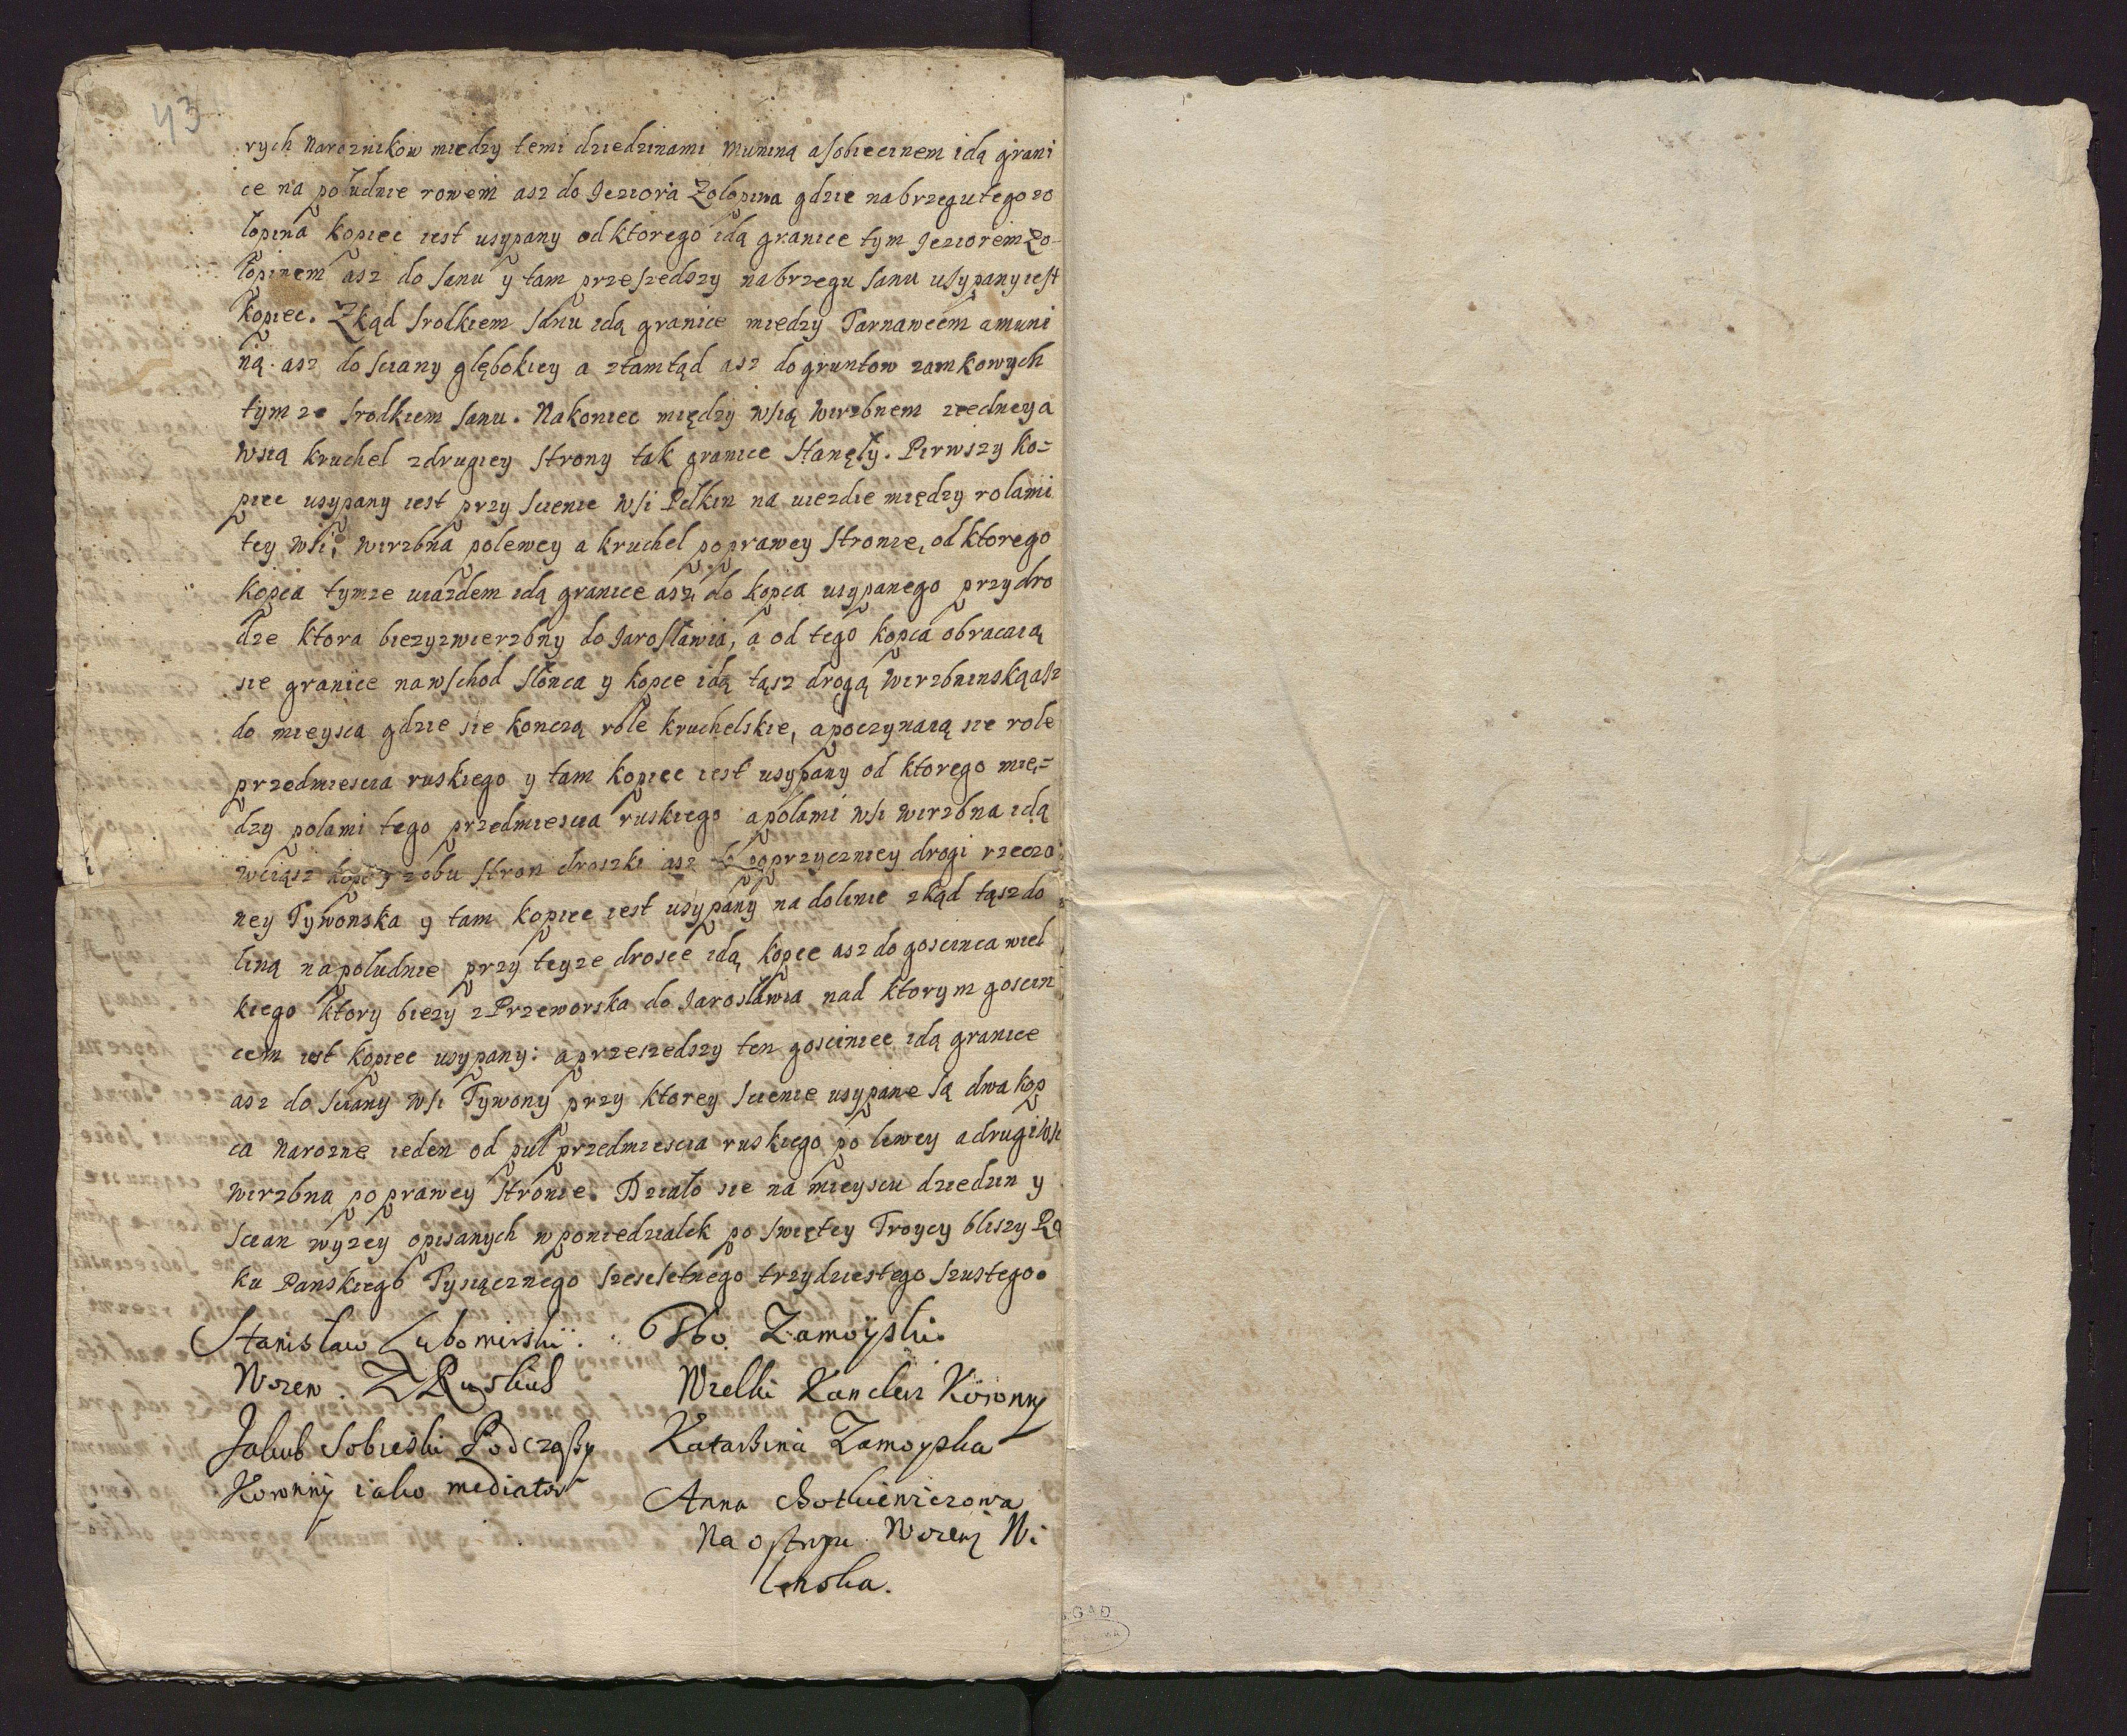 43
rych Naroznikow między temi dziedzinami Muniną a sobiecinem idą grani
ce na południe rowem asz do Jeziora Zołopina gdzie nabrzegu tego zo
łopina kopiec iest usypany od ktorego idą granice tym Jeziorem Zo-
łopinem asz do sanu y tam przeszedszy nabrzegu sanu usypany iest
kopiec. Zkąd srodkiem sanu idą granice między Tarnawcem a muni
ną. asz do sciany głębokiey a ztamtąd asz do gruntow zamkowych
tym ze srodkiem sanu. Nakoniec między wsią Wirzbnem z iedney a
wsią kruchel zdrugiey strony tak granice stanęły. Pirwszy ko=
piec usypany iest przy scienie wsi Pełkin na uiezdie między rolami
tey wsi, wirzbna polewey a kruchel poprawey stronie, od ktorego
kopca tymze uiazdem idą granice asz do kopca usypanego przy dro
dze ktora biezy zwierzbny do Jarosławia, a od tego kopca obracaią
sie granice nawschod słonca y kopce idą tąsz drogą wirzbninską asz
do mieysca gdzie sie konczą role kruchelskie, apoczynaią sie role
przedmiescia ruskiego y tam kopiec iest usypany od ktorego mię=
dzy polami tego przedmiescia ruskiego apolami wsi wirzbna idą
wciąsz kopce z obu stron droszki asz do poprzyczniey drogi rzeczo
ney Tywonska y tam kopiec iest usypany na dolinie zkąd tąsz do
liną na południe przy teyze drosce idą kopce asz do goscinca wiel
kiego ktory biezy z Przeworska do Jarosławia nad ktorym goscin
cem iest kopiec usypany: a przeszedszy ten gosciniec idą granice
asz do sciany wsi Tywony przy ktorey scienie usypane są dwa kop
ca Narozne ieden od pul przedmiescia ruskiego po lewey a drugi wsi
wirzbna po prawey stronie. Działo sie na mieyscu dziedzin y
scian wyzey opisanych wponiedziałek po swiętey Troycy bliszy Ro
ku Panskiego Tysiącznego szescsetnego trzydziestego szustego.
Stanisław Lubomirskij.
Woiew. Z Ruskich
Jakub Sobieski Podczaszy
Koronny iako mediator
Tho. Zamoÿski.
Wielki Kanclerz Koronny
Katarzina Zamoyska
Anna Chotkiewiczowa
Na ostrogu Woiew Wi
lenska.
AGAD